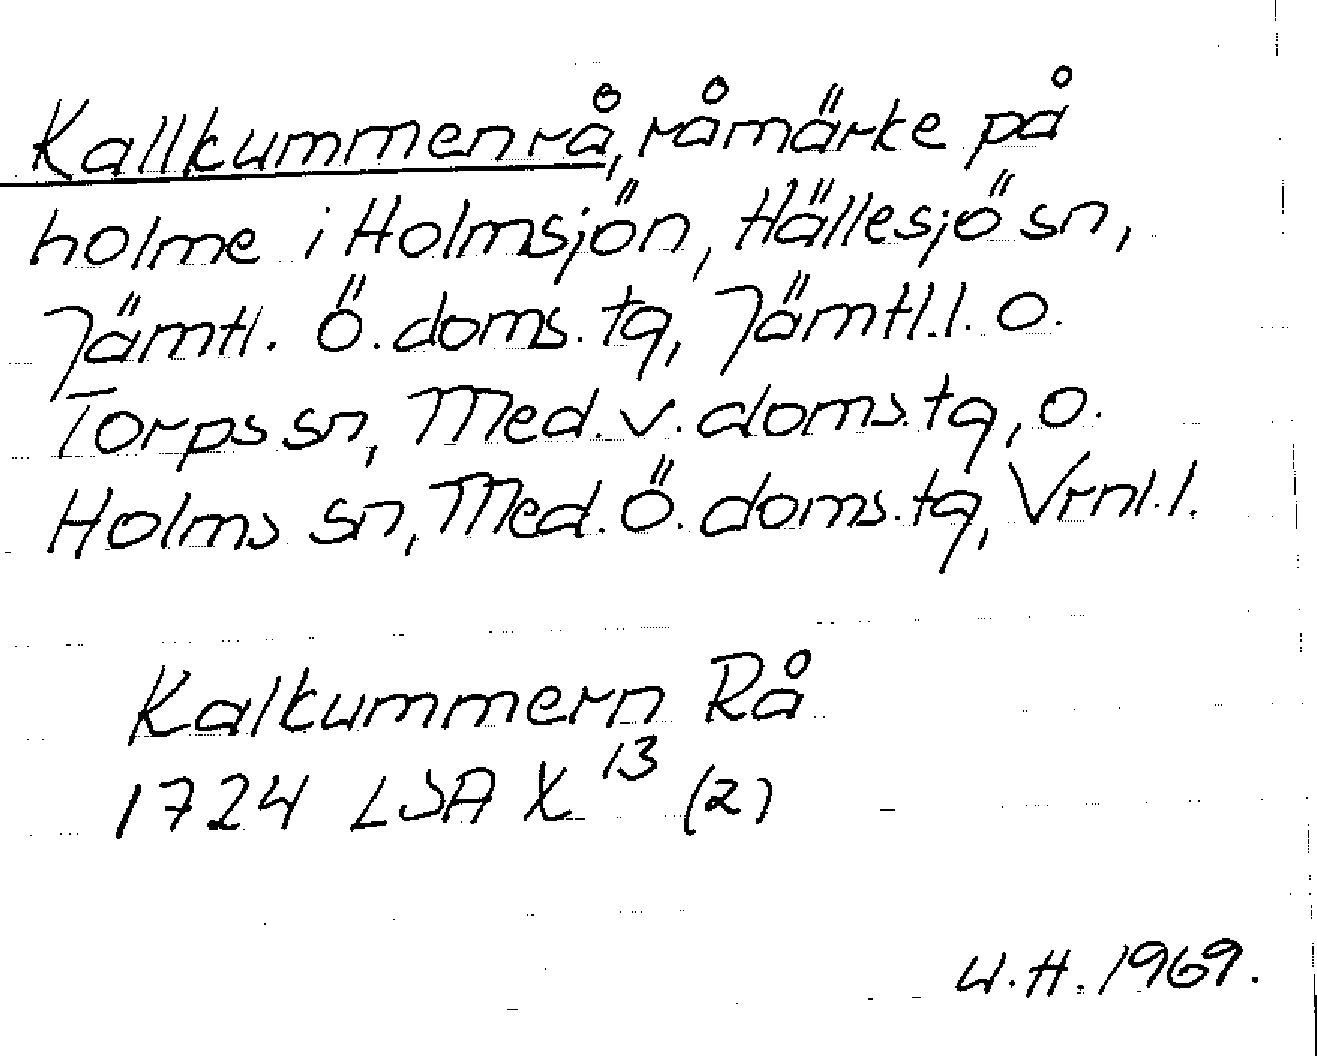 Kallkummenrå, råmärke på
holme i Holmsjön, Hällesjö sn,
Jämtl. Ö. doms. tg, Jämtl.l. o.
Torps sn, Med. v. doms. tg, o.
Holms sn, Med. Ö. doms. tg, Vrnl.l.
Kalkummern Rå
1724 LSA X 13 (2)
U.H. 1969.